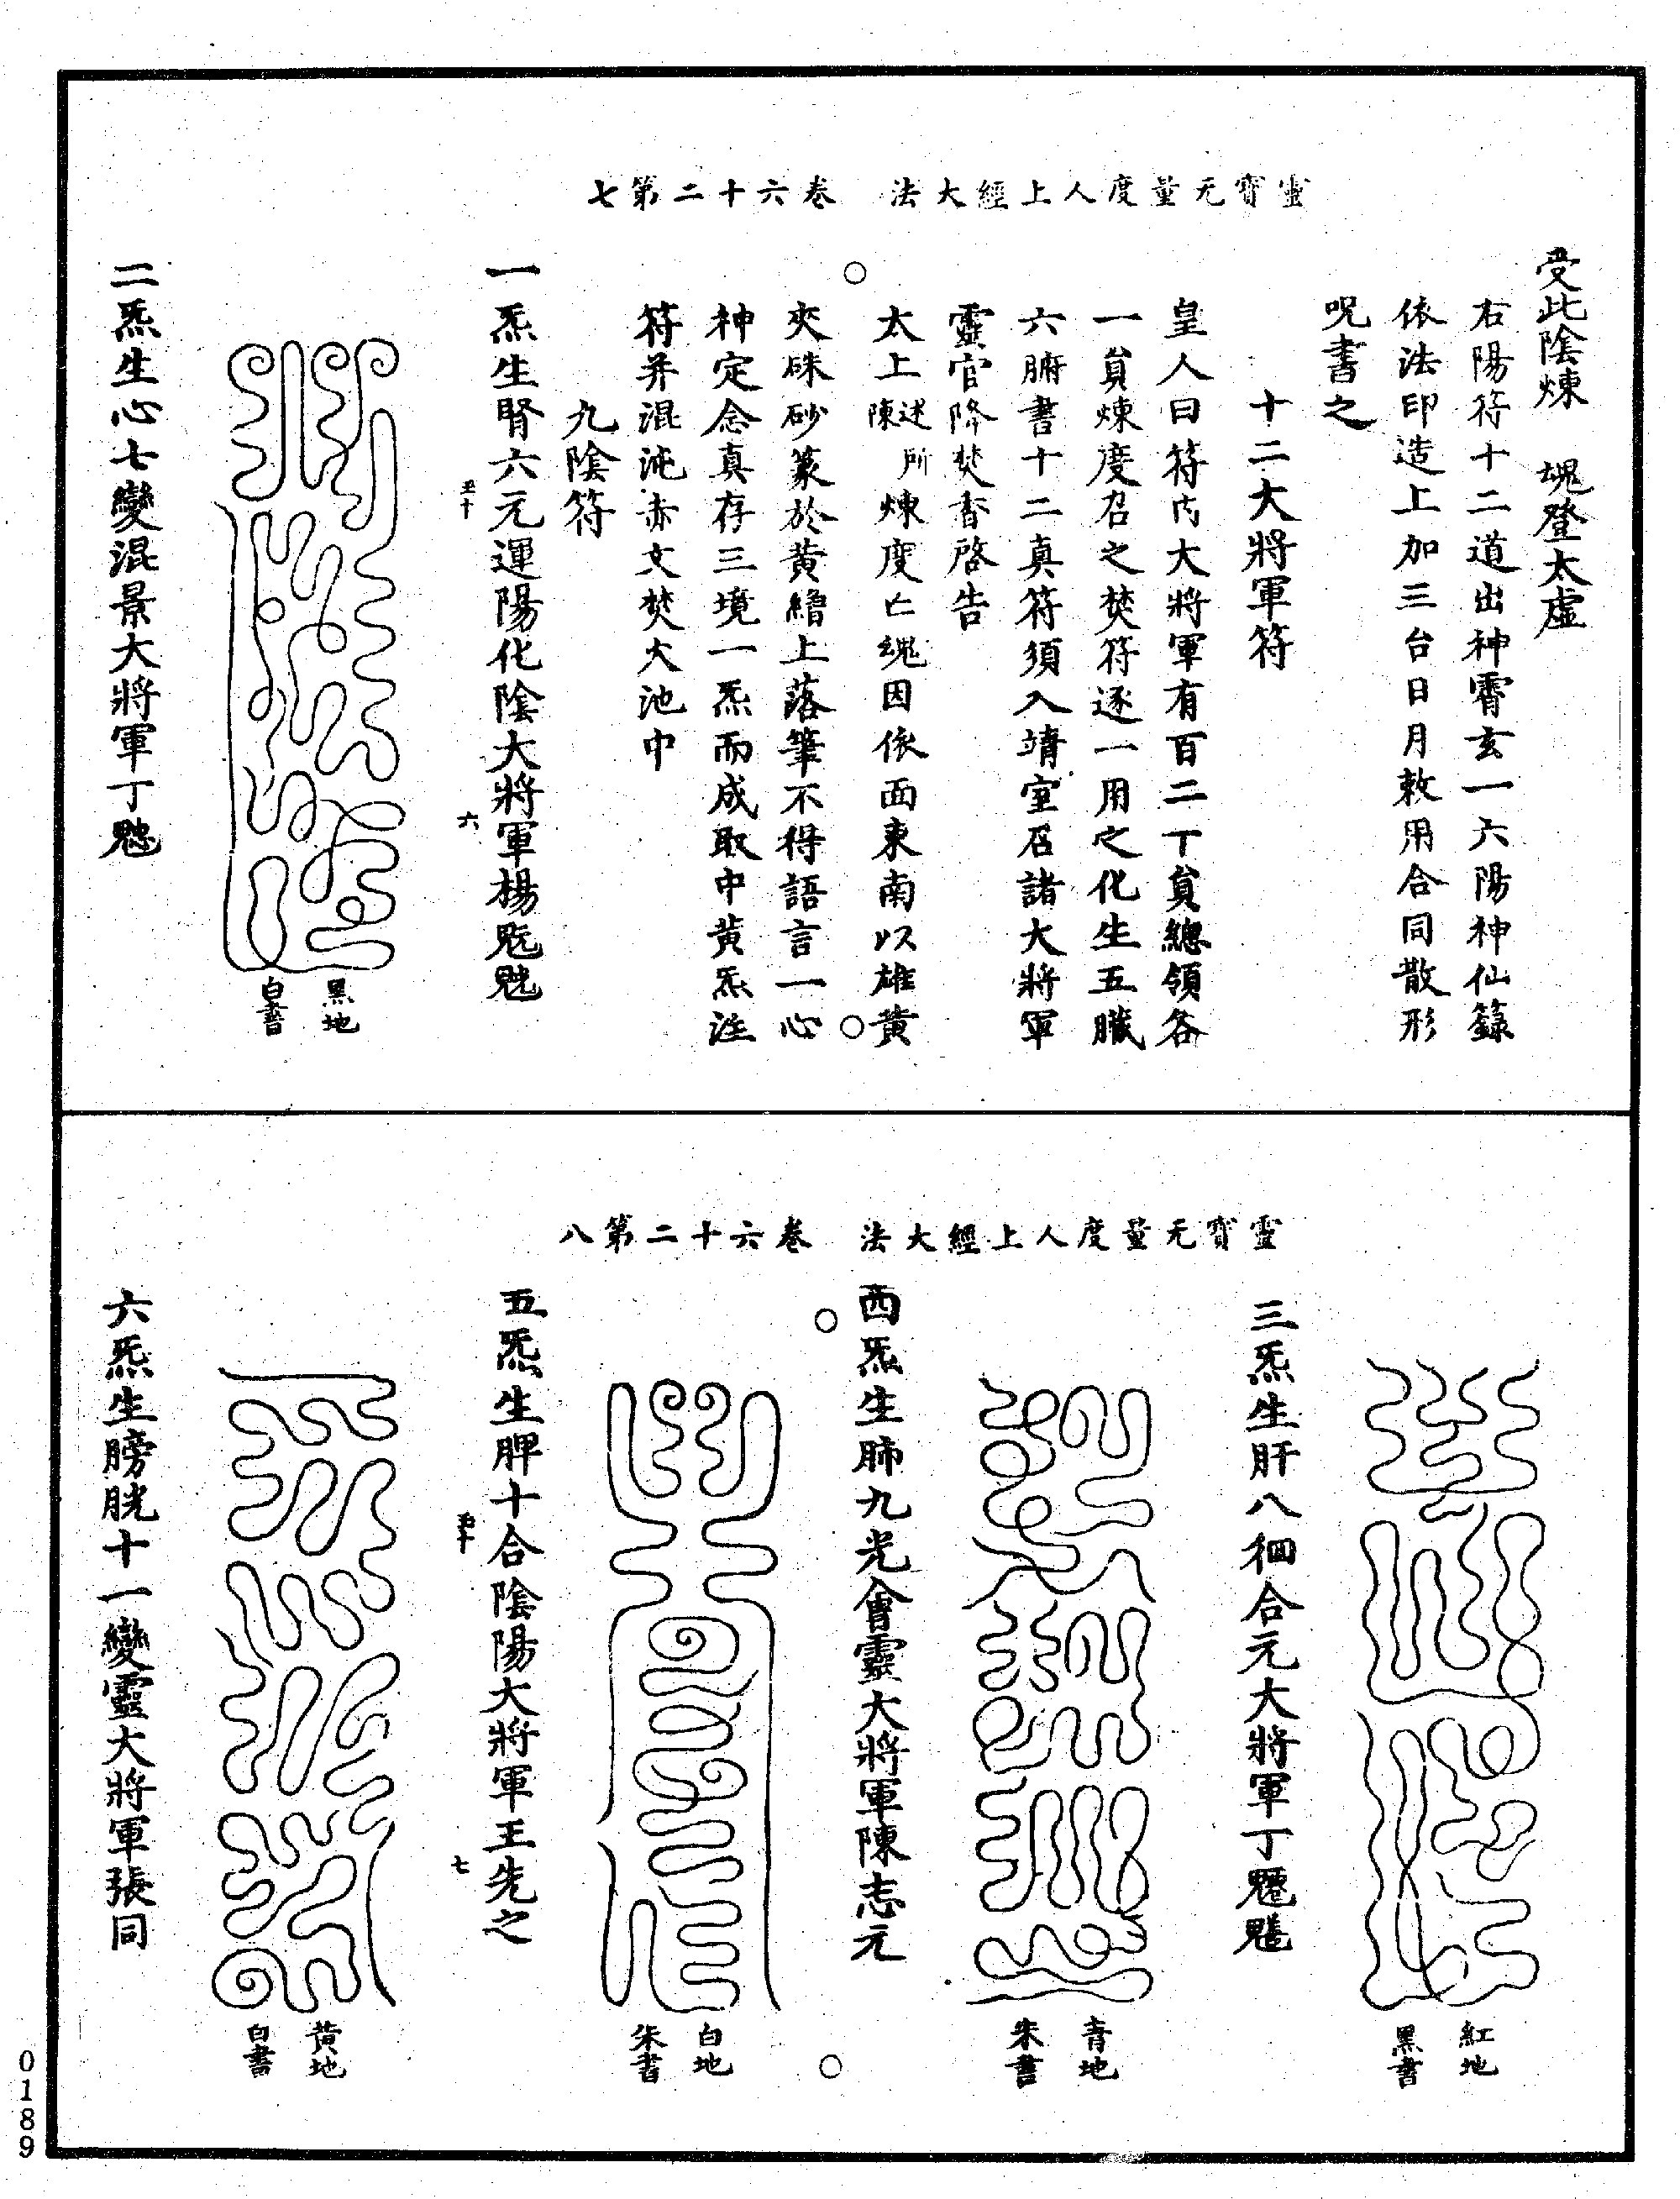 靈寶无量度人上經大法　卷六十二第七
受此陰煉　魂登太虛
右陽符十二道出神霄玄一六陽神仙籙
依法印造上加三台日月敕用合同散形
呪書之
十二大將軍符
皇人曰符内大將軍有百二丁員總領各
一員煉度召之焚符逐一用之化生五臟
六腑書十二真符須入靖室召諸大將軍
靈官降焚香啓告
太上陳述所煉度亡魂因依面東南以雄黃
夾硃砂篆於黃繒上落筆不得語言一心
神定念真存三境一炁而成取中黃炁注
符并混沌赤文焚火池中
九陰符
一炁生腎六元運陽化陰大將軍楊
六
黑地
白書
二炁生心七變混景大將軍丁
靈寶无量度人上經大法　卷六十二第八
紅地
黑書
三炁生肝八徊合元大將軍丁
青地
朱書
西炁生肺九光會靈大將軍陳志元
白地
朱書
五炁生脾十合陰陽大將軍王先之
七
黃地
白書
六炁生膀胱十一變靈大將軍張同
0189